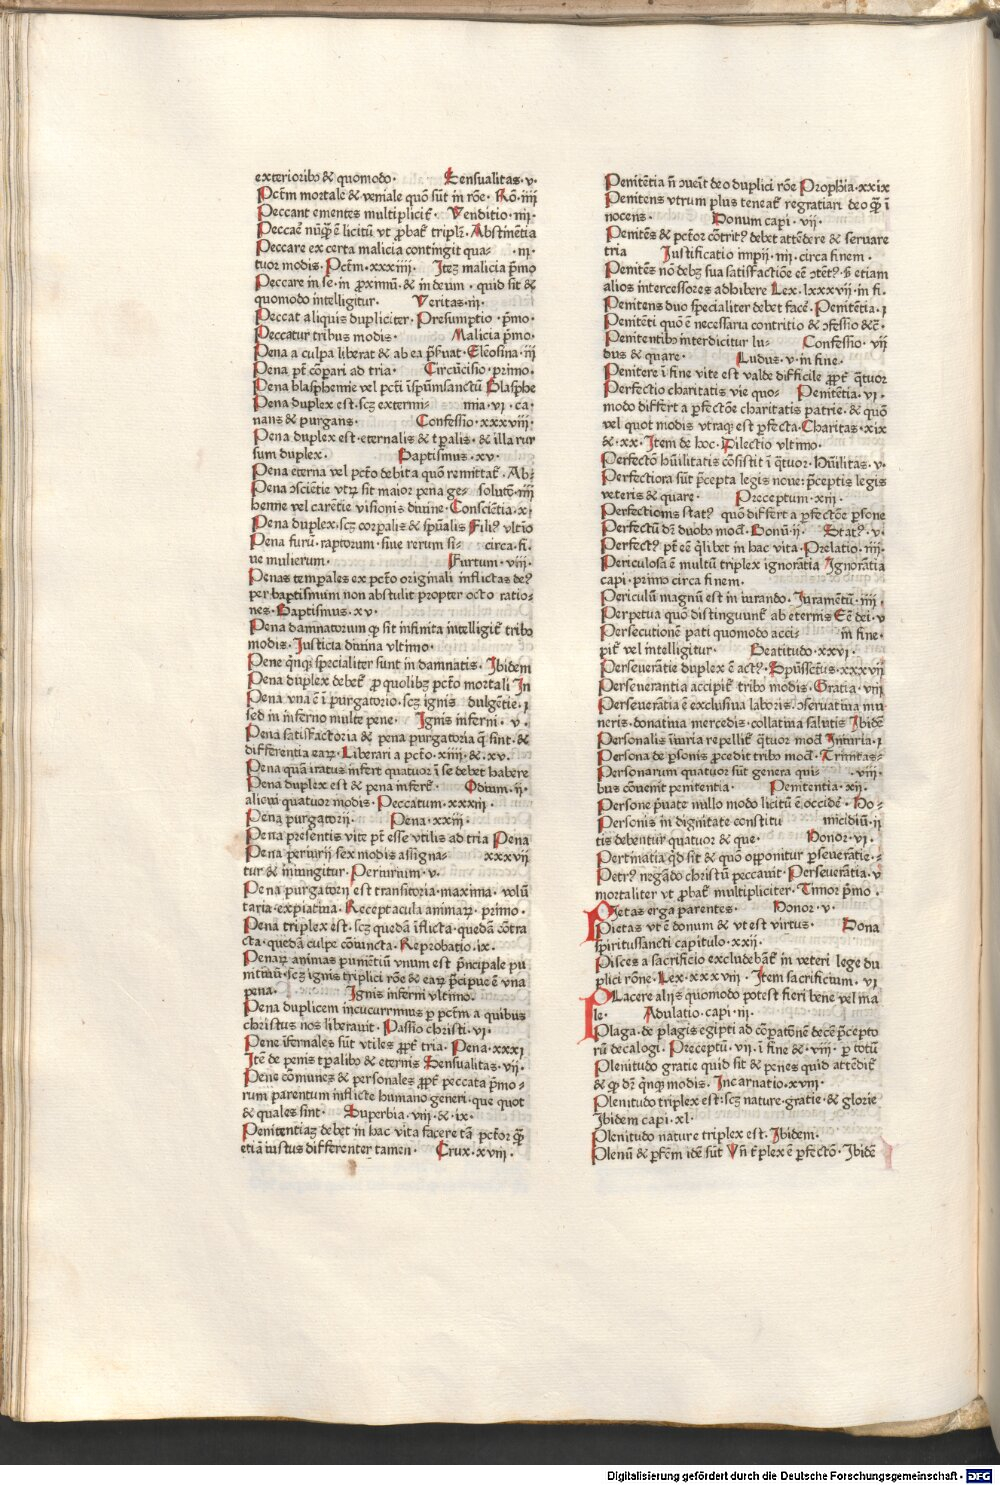 exterioribꝰ & quomodo. Sensualitas. v.
Pctm̄ mortale & veniale quō sūt in rōne. Rō. iiii
Peccant ementes multiplicit̄. Venditio. iii.
Peccare ex certa malicia contingit qua- . iii.
tuor modis. Pctm̄. xxxiiii. Iteȝ malicia p̄mo
Peccare in se. in ꝓximū. & in deum. quid sit &
quomodo intelligitur. Veritas. iii.
Peccat aliquis dupliciter. Presumptio. p̄mo.
Peccatur tribus modis. Malicia p̄mo.
Pena a culpa liberat & ab ea p̄ſuat. Eleosina. iii
Pena pt̄ cōpari ad tria. Circūcisio. primo.
Pena blasphemie vel pcti ī sp̄umsanctū Blasphe
Pena duplex est. scȝ extermi- mia. vi. ca.
nans & purgans. Confessio. xxxviii.
Pena duplex est. eternalis & tꝑalis. & illa rur
sum duplex. Baptismus. xv.
Pena eterna vel pcto debita quō remittat̄. Ab-
Pena ꝯsciētie vtꝝ sit maior pena ge- solutō. iiii
henne vel carētie visionis divine. Consciētia. x.
Pena duplex. scȝ corꝑalis & sp̄ualis Filiꝰ vltīo
Pena furū. raptorum. siue rerum si- circa. fi.
ue mulierum. Furtum. viii.
Penas temꝑales ex pcto originali inflictas deꝰ
per baptismum non abstulit propter octo ratio-
nes. Baptismus. xv.
Pena damnatorum ꝙ sit infinita intelligit̄ tribꝰ
modis. Justicia diuina vltimo.
Pene qnꝗ specialiter sunt in damnatis. Ibidem
Pena duplex debet̄ ꝓ quolibȝ pcto mortali In
Pena vna ē ī purgatorio. scȝ ignis dulgētie. i
sed in inferno multe pene. Ignis inferni. v.
Pena satisfactoria & pena purgatoria q̄ sint. &
differentia earꝝ. Liberari a pcto. xiiii. & xv.
Pena quā iratus infert quatuor ī se debet habere
Pena duplex est & pena infert̄. Odium. ii.
alicui quatuor modis. Peccatum. xxxiii.
Pena purgatorij. Pena. xxiii.
Pena presentis vite pt̄ esse vtilis ad tria Pena
Pena periurij sex modis assigna- xxxvii
tur & iniungitur. Periurium. v.
Pena purgatorij est transitoria. maxima. volū
taria. expiatiua. Receptacula animaꝝ. primo.
Pena triplex est. scȝ quedā īflicta. quedā cōtra
cta. quedā culpe cōiuncta. Reprobatio. ix.
Penaꝝ animas punientiū vnum est p̄ncipale pu
nitiuū. scȝ ignis triplici rōne & eaꝝ p̄cipue ē vna
pena. Ignis inferni vltimo.
Pena duplicem incucurrimus ꝑ pctm̄ a quibus
christus nos liberauit. Passio christi. vi.
Pene īfernales sūt vtiles ꝓpt̄ tria. Pena. xxxi
Itē de penis tꝑalibꝰ & eternis Sensualitas. vii.
Pene cōmunes & personales ꝓpt̄ peccata p̄mo-
rum parentum inflicte humano generi. que quot
& quales sint. Superbia. viii. & ix.
Penitentiaȝ debet in hac vita facere tā pctor ꝙ̄
etiā iustus differenter tamen. Crux. xviii.
Penitētia nō ꝯuenit deo duplici rōne Prophīa. xxix
Penitens vtrum plus teneat̄ regratiari deo ꝙ̄ ī
nocens. Donum capi. vii.
Penitēs & pctor cōtritꝰ debet attēdere & seruare
tria Justificatio impij. iii. circa finem.
Penitēs nō debȝ sua satisfactiōe eē ꝯtētꝰ. sȝ etiam
alios intercessores adhibere Lex. lxxxvii. in fi.
Penitens duo specialiter debet facē. Penitētia. i
Penitēti quō ē necessaria contritio & ꝯfessio &c̄.
Penitentibꝰ interdicitur lu- Confessio. vii
dus & quare. Ludus. v. in fine.
Penitere ī fine vite est valde difficile ꝓpt̄ q̄tuor
Perfectio charitatis vie quo- Penitētia. vi.
modo differt a ꝑfectōe charitatis patrie. & quō
vel quot modis vtraqꝫ est ꝑfecta. Charitas. xix
& xx. Item de hoc. Dilectio vltimo.
Perfectō hūilitatis cōsistit ī q̄tuor. Hūilitas. v.
Perfectiora sūt p̄cepta legis noue p̄ceptis legis
veteris & quare. Preceptum. xiii.
Perfectionis statꝰ quō differt a ꝑfectōe ꝑsone
Perfectū dȝ duobꝰ mod̄. Bonū. ii. Statꝰ. v.
Perfectꝰ pt̄ eē q̄libet in hac vita. Prelatio. iiii.
Periculosa ē multū triplex ignorātia Ignorātia
capi. primo circa finem.
Periculū magnū est in iurando. Juramētū. iiii.
Perpetua quō distinguunt̄ ab eternis Eē dei. v
Persecutionē pati quomodo acci- in fine.
pit̄ vel intelligitur. Beatitudo. xxvi.
Perseuerātie duplex ē actꝰ. Sp̄ussctūs. xxxvii
Perseuerantia accipit̄ tribꝰ modis. Gratia. viii
Perseuerātia ē exclusiua laboris. ꝯseruatiua mu
neris. donatiua mercedis. collatiua salutis Ibidē
Personalis iniuria repellit̄ q̄tuor mod̄ Iniuria. i
Persona de ꝑsonis ꝓcedit tribꝰ mod̄. Trinitas-
Personarum quatuor sūt genera qui- . viii.
bus cōuenit penitentia. Penitentia. xii.
Persone p̄uate nullo modo licitū ē occidē. Ho-
Personis in dignitate constitu micidiū. ii
tis debentur quatuor & que. Honor. vi.
Pertinatia qd sit & quō opponitur ꝑseuerātie. -
Petrꝰ negādo christū peccauit. Perseuerātia. v
mortaliter vt ꝓbat̄ multipliciter. Timor p̄mo.
Pietas erga parentes. Honor. v.
Pietas vt ē donum & vt est virtus. Dona
spiritussancti capitulo. xxii.
Pisces a sacrificio excludebāt̄ in veteri lege du
plici rōne. Lex. xxxvii. Item sacrificium. vi
PLacere alijs quomodo potest fieri bene vel ma
le. Adulatio. capi. iii.
Plaga. de plagis egipti ad cōparatōnē decē p̄cepto
rū decalogi. Preceptū. vii. ī fine & viii. ꝑ totū
Plenitudo gratie quid sit & penes quid attēdit̄
& ꝙ dȝ qnꝗ modis. Incarnatio. xvii.
Plenitudo triplex est. scȝ nature. gratie. & glorie
Ibidem capi. xl.
Plenitudo nature triplex est. Ibidem.
Plenū & ꝑfcm̄ idē sūt Vn̄ tⁱplex ē ꝑfectō. Ibidē
Digitalisierung gefördert durch die Deutsche Forschungsgemeinschaft - DFG